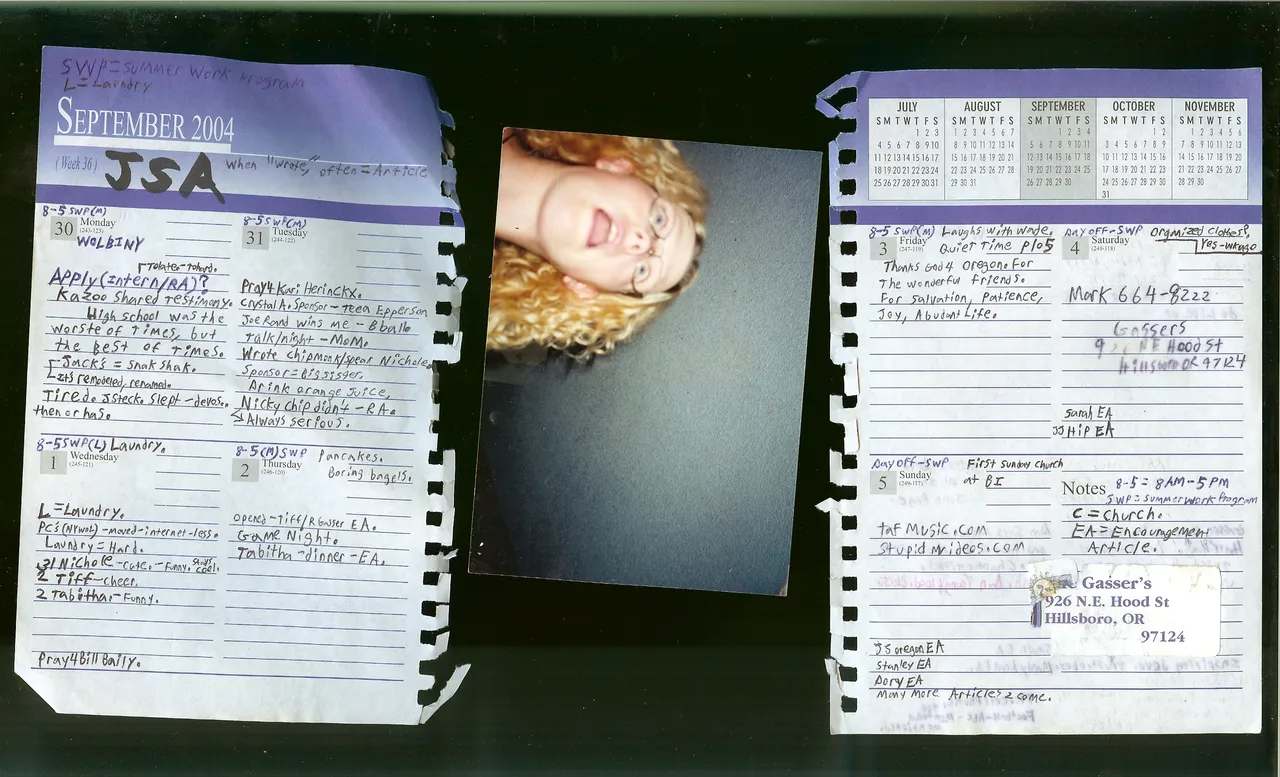 SWP=Summer Work Program
L=Laundry
SEPTEMBER 2004
(Week 36) JSA When "wrote," often=Article
8-5 SWP(M)
30 Monday
(243-123)
WOLBINY
Apply(Intern/RA)?
Kazoo Shared Testimony.
High school was the
worste of times, but
the best of times.
Jack's = Snak Shak.
Its remodeled, renamed.
Tired. JSteck. Slept-devos.
then or has.
8-5 SWP(M)
31 Tuesday
(244-122)
Pray4 Kari Herinckx.
Crystal A. Sponsor-Teea Epperson
Joe Rand wins me - 8balls
Talk/night-MoM.
Wrote Chipmonk/spear Nichole
Sponsor=Big sister.
Drink orange Juice,
Nicky chip didn't - RA.
Always serious.
8-5 SWP(L) Laundry.
1 Wednesday
(245-121)
L=Laundry.
PC's (NYWOL)-moved-internet-less.
Laundry=Hard.
Nichole-cute.-Funny.
2 Tiff-cheer.
2 Tabitha-Funny.
Pray4Bill Baily.
8-5 (M) SWP Pancakes.
2 Thursday
(246-120)
Boring bagels.
opened-Tiff/R Gasser EA.
Game Night.
Tabitha-dinner-EA.
JULY AUGUST SEPTEMBER OCTOBER NOVEMBER
S M T W T F S S M T W T F S S M T W T F S S M T W T F S S M T W T F S
1 2 3 1 2 3 4 5 6 7 1 2 3 4 1 2 1 2 3 4 5 6
4 5 6 7 8 9 10 8 9 10 11 12 13 14 5 6 7 8 9 10 11 3 4 5 6 7 8 9 7 8 9 10 11 12 13
11 12 13 14 15 16 17 15 16 17 18 19 20 21 12 13 14 15 16 17 18 10 11 12 13 14 15 16 14 15 16 17 18 19 20
18 19 20 21 22 23 24 22 23 24 25 26 27 28 19 20 21 22 23 24 25 17 18 19 20 21 22 23 21 22 23 24 25 26 27
25 26 27 28 29 30 31 29 30 31 26 27 28 29 30 24 25 26 27 28 29 30 28 29 30
31
8-5 SWP(M) Laughs with wade.
3 Friday
(247-119)
Quiet Time P105
Thanks God 4 Oregon. For
The wonderful friends.
For Salvation, Patience,
Joy, Abudant Life.
DAY OFF-SWP Organized clothes?
Yes-
4 Saturday
(248-118)
Mark 664-8222
Gassers
9 NE Hood St
Hillsboro OR 97124
Sarah EA
JJ Hip EA
DAY OFF-SWP First Sunday church
5 Sunday
(249-117)
at BI
taf Music.com
Stupid Videos.com
JS oregon EA
Stanley EA
Dory EA
Many more Articles 2 come.
Notes 8-5 = 8AM-5PM
SWP=Summer Work Program
C=Church.
EA=Encouragement
Article.
Gasser's
926 N.E. Hood St
Hillsboro, OR
97124